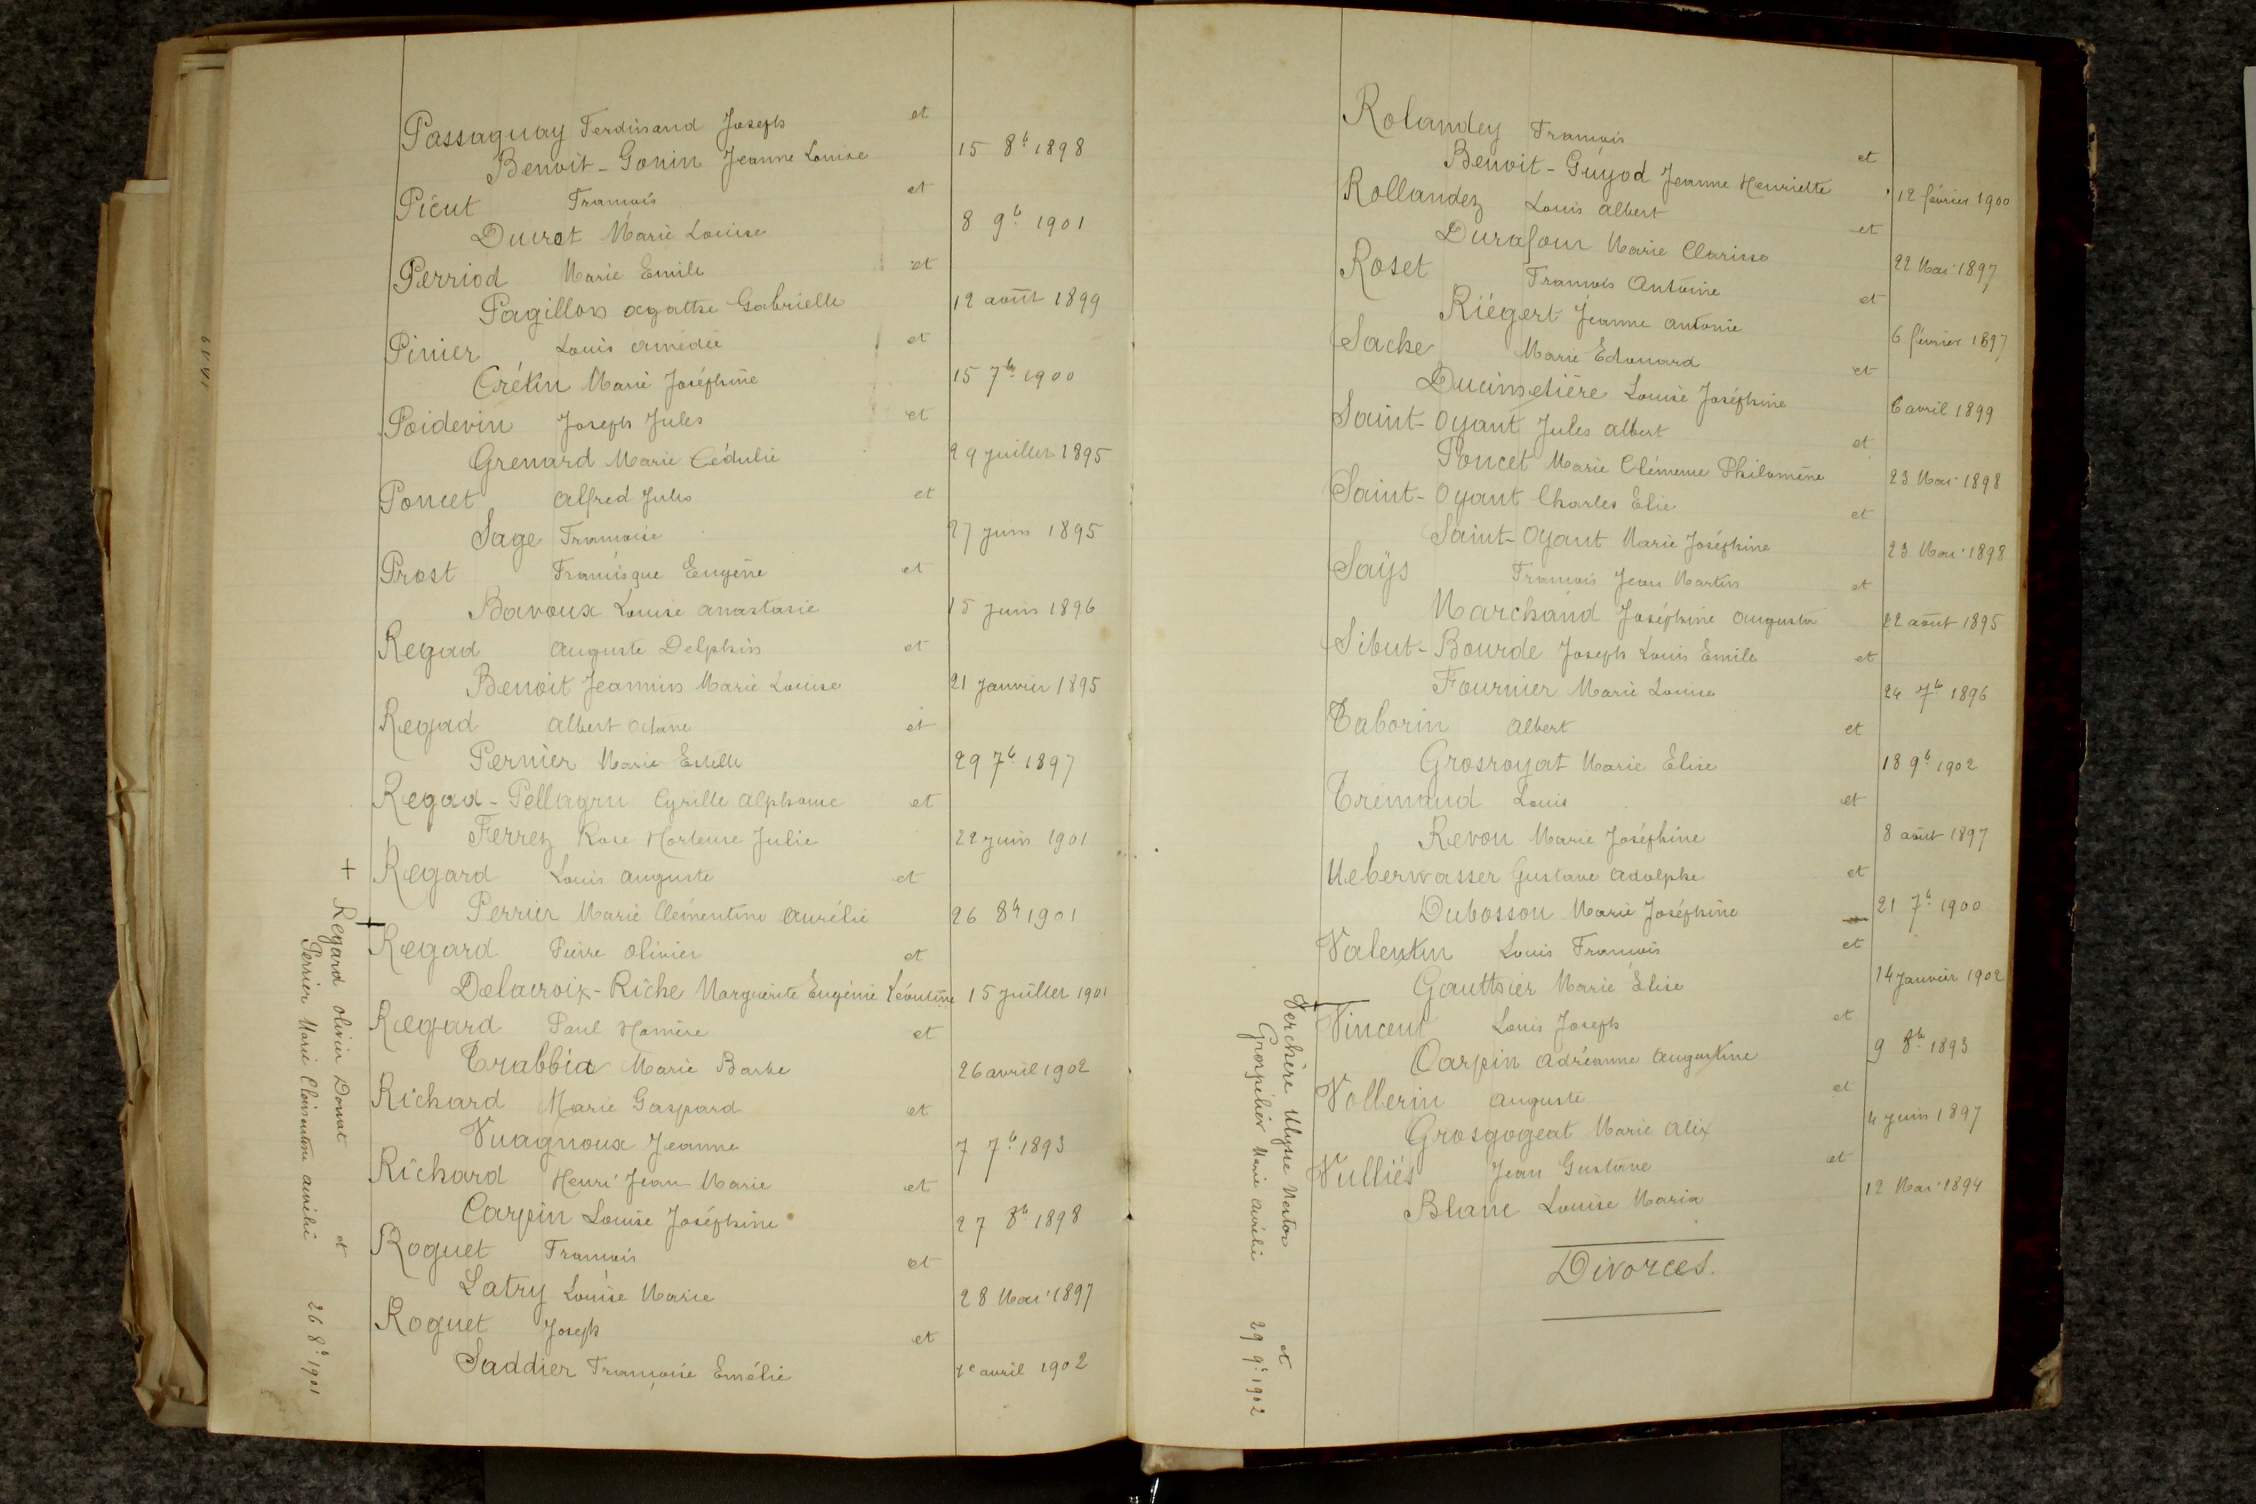 Passaquay Ferdinand Joseph et
Benoit-Gonin Jeanne Louise 15 8b 1898
Picut François et
Ducrot Marie Louise 8 9b 1901
Perriod Marie Emile et
Pagillon Agathe Gabrielle 12 août 1899
Pinier Louis Amédée et
Crétin Marie Joséphine 15 7b 1900
Poidevin Joseph Jules et
Grenard Marie Cédulie 29 juillet 1895
Poncet Alfred Jules et
Sage Françoise 27 juin 1895
Prost Francisque Eugène et
Bavoux Louise Anastasie 15 juin 1896
Regad Auguste Delphin et
Benoit Jeannin Marie Louise 21 janvier 1895
Regad Albert Octave et
Pernier Marie Estelle 29 7b 1897
Regad-Pellagru Cyrille Alphonse et
Ferrez Rose Hortense Julie 22 juin 1901
Regard Louis Auguste et
Perrier Marie Clémentine Aurélie 26 8b 1901
Regard Pierre Olivier et
Delacroix-Riche Marguerite Eugénie Léontine 15 juillet 1901
Regard Paul Homère et
Trabbia Marie Barbe 26 avril 1902
Richard Marie Gaspard et
Vuagnoux Jeanne 7 7b 1893
Richard Henri Jean Marie et
Carpin Louise Joséphine 27 8b 1898
Roguet François et
Latry Louise Marie 28 Mai 1897
Roguet Joseph et
Saddier Françoise Emélie 1e avril 1902
+ Regard Olivier Donat et
Perrier Marie Clémentine Aurélie 26 8b 1901
Rolandey François et
Benoit-Guyod Jeanne Henriette 12 février 1900
Rollandez Louis Albert et
Durafour Marie Clarisse 22 Mai 1897
Roset François Antoine et
Riégert Jeanne Antonie 6 février 1897
Sache Marie Edouard et
Ducimetière Louise Joséphine 6 avril 1899
Saint-Oyant Jules Albert et
Poncet Marie Clémence Philomène 23 Mai 1898
Saint-Oyant Charles Elie et
Saint-Oyant Marie Joséphine 23 Mai 1898
Saÿs François Jean Martin et
Marchand Joséphine Augusta 22 août 1895
Sibut-Bourde Joseph Louis Emile et
Fournier Marie Louise 24 7b 1896
Taborin Albert et
Grosroyat Marie Elise 18 9b 1902
Trimaud Louis et
Revon Marie Joséphine 8 août 1897
Ueberwasser Gustave Adolphe et
Dubosson Marie Joséphine 21 7b 1900
Valentin Louis François et
Gauthier Marie Elise 14 janvier 1902
Vincent Louis Joseph et
Carpin Adréanne Augustine 9 8b 1893
Vollerin Auguste et
Grosgogeat Marie Alix 4 juin 1897
Vulliés Jean Gustave et
Blanc Louise Maria 12 Mai 1894
Divorces.
Verchère Ulysse Nestor et
Grospélier Marie Aurélie 29 9b 1902